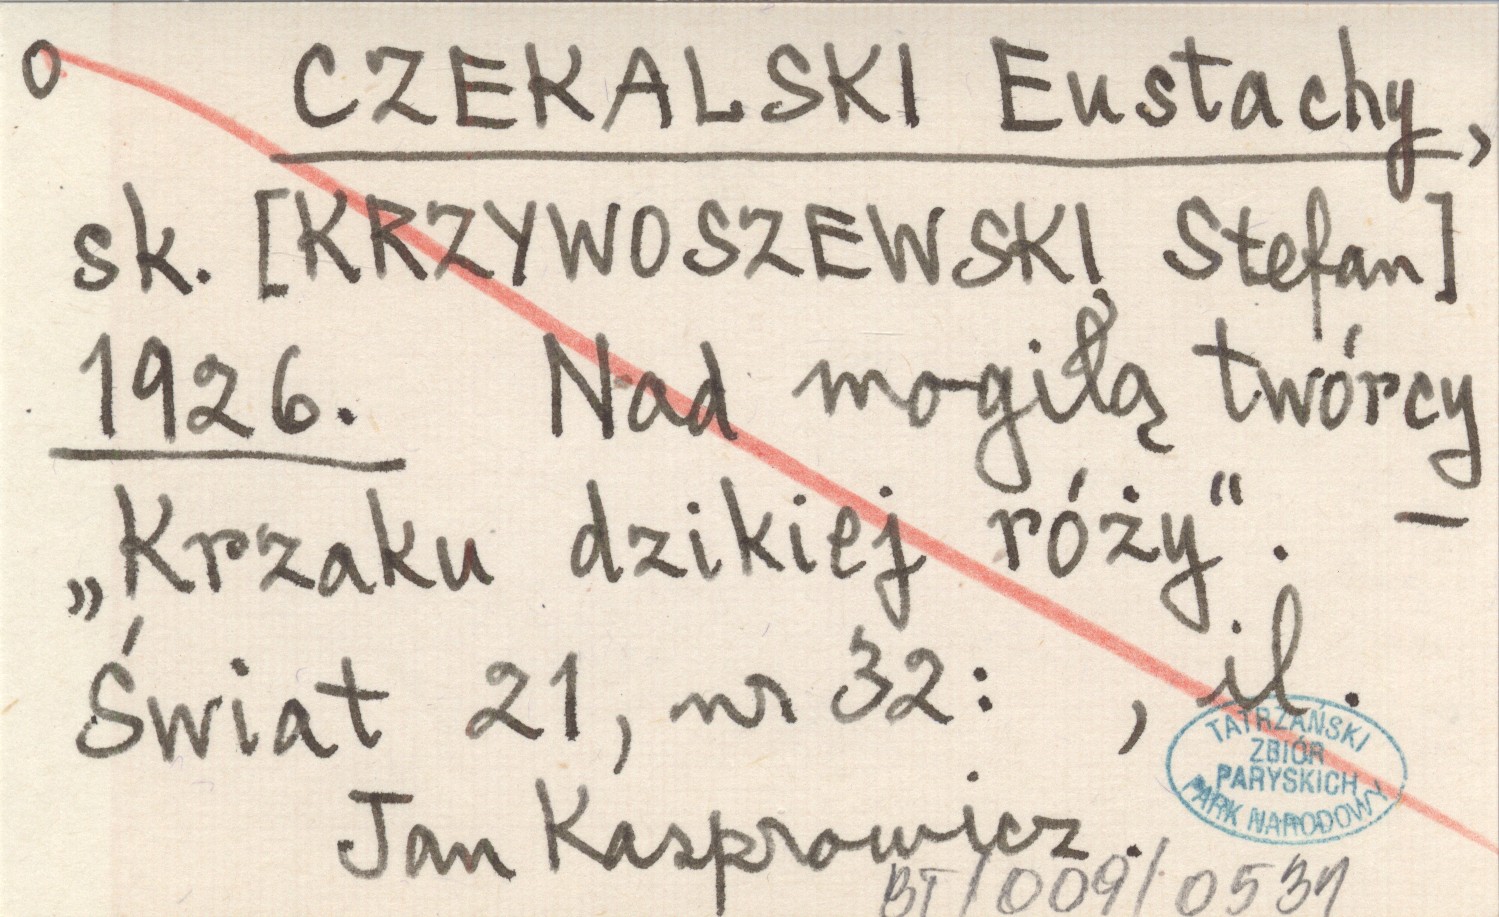 o CZEKALSKI Eustachy,
sk. [KRZYWOSZEWSKI, Stefan]
1926. Nad mogiłą twórcy
„Krzaku dzikiej róży". —
Świat 21, nr 32: , il.
Jan Kasprowicz.
TATRZAŃSKI
ZBIÓR
PARYSKICH
PARK NARODOWY
BT/009/0531